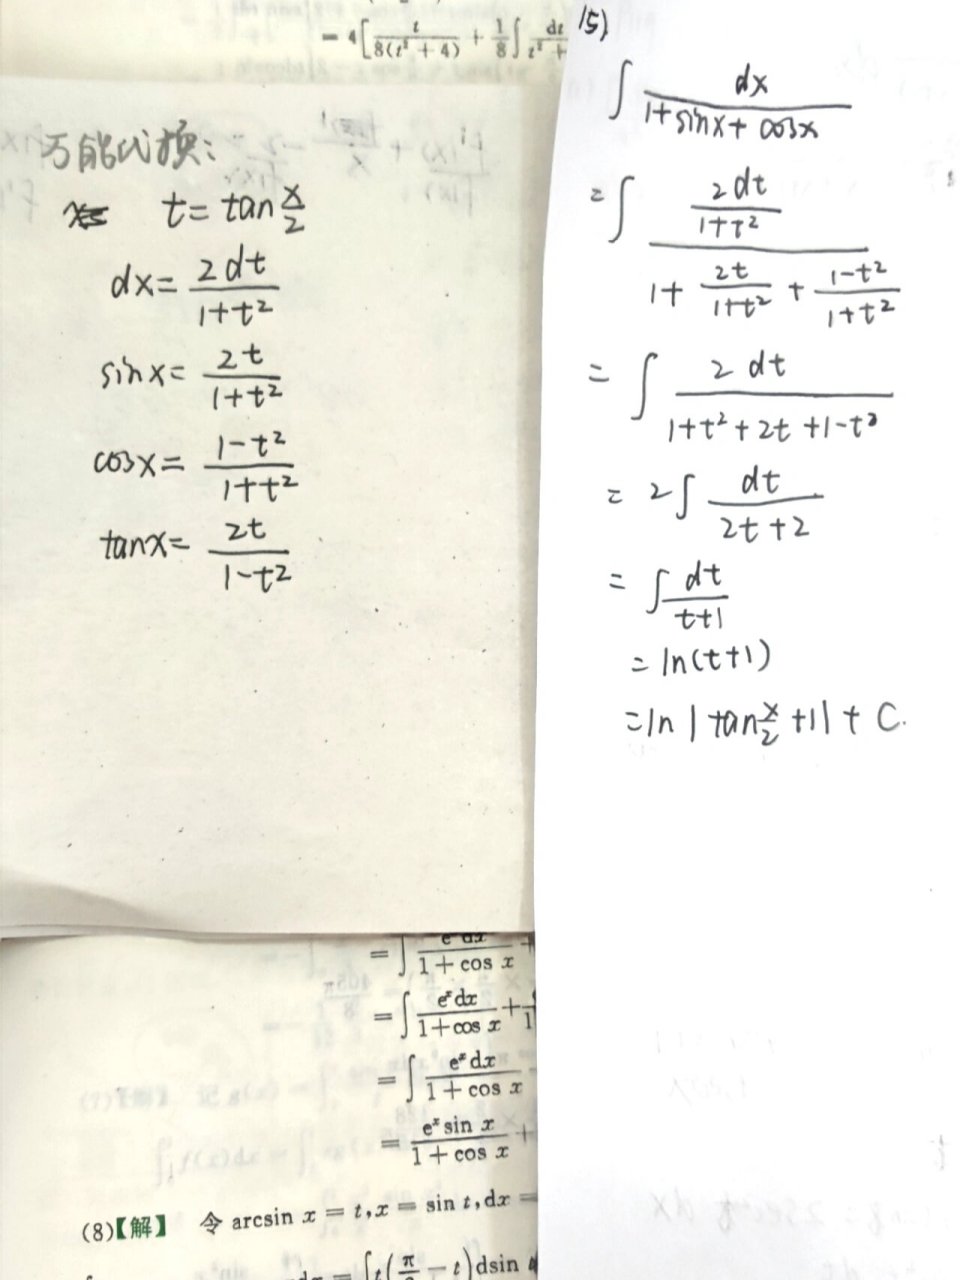 = 4[t/(8(t² + 4)) + 1/8 ∫ dt/(t² +
万能代换:
t = tan x/2
dx = 2dt/(1+t²)
sinx = 2t/(1+t²)
cosx = (1-t²)/(1+t²)
tanx = 2t/(1-t²)
15)
∫ dx/(1+sinx+cosx)
= ∫ (2dt/(1+t²))/(1 + 2t/(1+t²) + (1-t²)/(1+t²))
= ∫ 2dt/(1+t²+2t+1-t²)
= 2∫ dt/(2t+2)
= ∫ dt/(t+1)
= ln(t+1)
= ln|tan x/2 +1| + C.
= ∫ eˣdx/(1 + cos x) +
= ∫ eˣdx/(1+cos x) +
= ∫ eˣdx/(1 + cos x)
= eˣ sin x/(1 + cos x) +
(8)【解】 令 arcsin x = t, x = sin t, dx =
= ∫t(π/2 - t)dsin